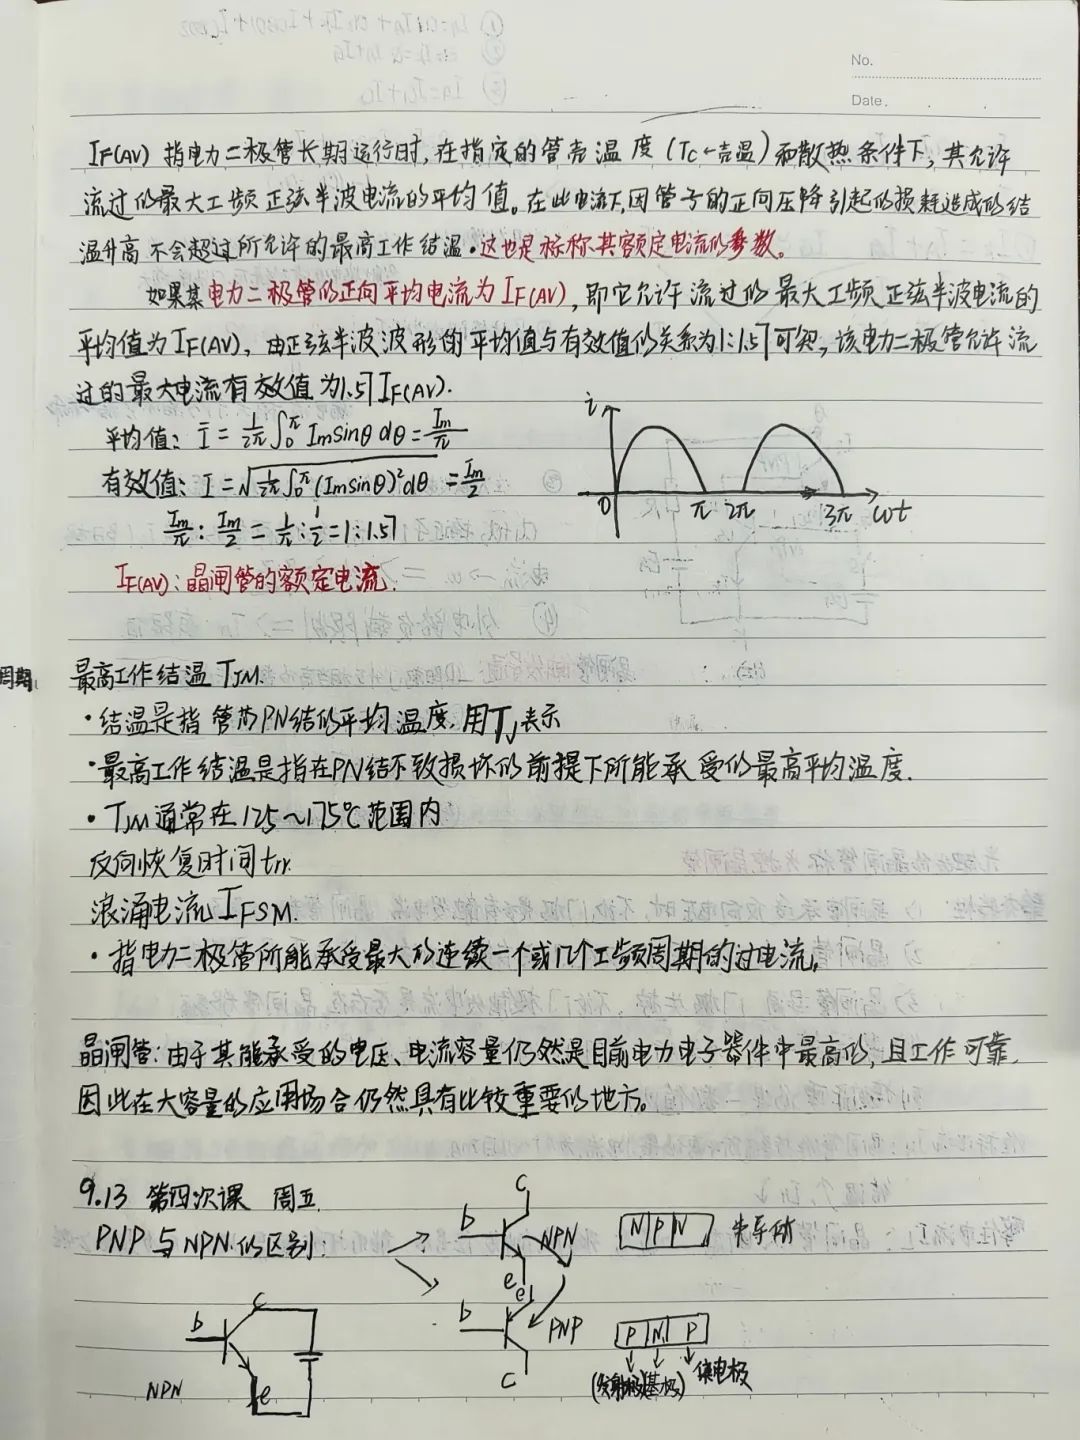 No.
Date.
IF(AV) 指电力二极管长期运行时,在指定的管壳温度(Tc←壳温)和散热条件下,其允许
流过的最大工频正弦半波电流的平均值。在此电流下,因管子的正向压降引起的损耗造成的结
温升高不会超过所允许的最高工作结温。这也是标称其额定电流的参数。
如果某电力二极管的正向平均电流为IF(AV),即它允许流过的最大工频正弦半波电流的
平均值为IF(AV),由正弦半波波形的平均值与有效值的关系为1:1.57可知,该电力二极管允许流
过的最大电流有效值为1.57IF(AV).
平均值: Ī = 1/2π ∫0^π Im sinθ dθ = Im/π
有效值: I = √(1/2π ∫0^π (Im sinθ)² dθ) = Im/2
Im/π : Im/2 = 1/π : 1/2 = 1:1.57
i
0 π 2π 3π ωt
IF(AV): 晶闸管的额定电流.
周期
最高工作结温 TJM.
·结温是指管芯PN结的平均温度,用TJ表示
·最高工作结温是指在PN结不致损坏的前提下所能承受的最高平均温度.
·TJM通常在125~175℃范围内
反向恢复时间trr.
浪涌电流IFSM.
·指电力二极管所能承受最大的连续一个或几个工频周期的过电流。
晶闸管:由于其能承受的电压、电流容量仍然是目前电力电子器件中最高的,且工作可靠,
因此在大容量的应用场合仍然具有比较重要的地方。
9.13 第四次课 周五.
PNP与NPN的区别:
c
b
NPN
e
N P N
e
b
PNP
c
P N P
(发射极)(基极) 集电极
c
b
e
NPN